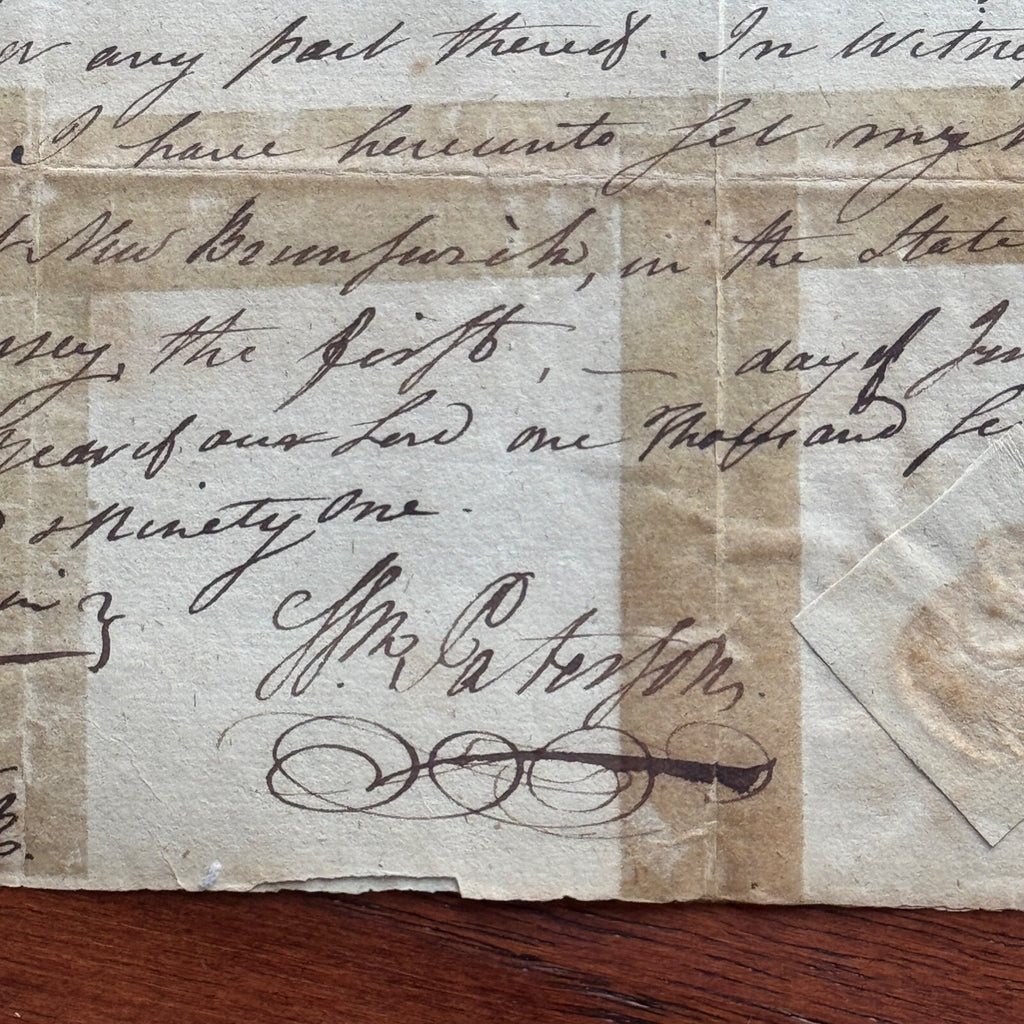 or any part thereof. In Witne
I have hereunto set my h
t New Brunswick, in the State
rsey, the first, — day of Jun
Year of our Lord one Thousand Se
& Ninety One.
}
Wm. Paterson.